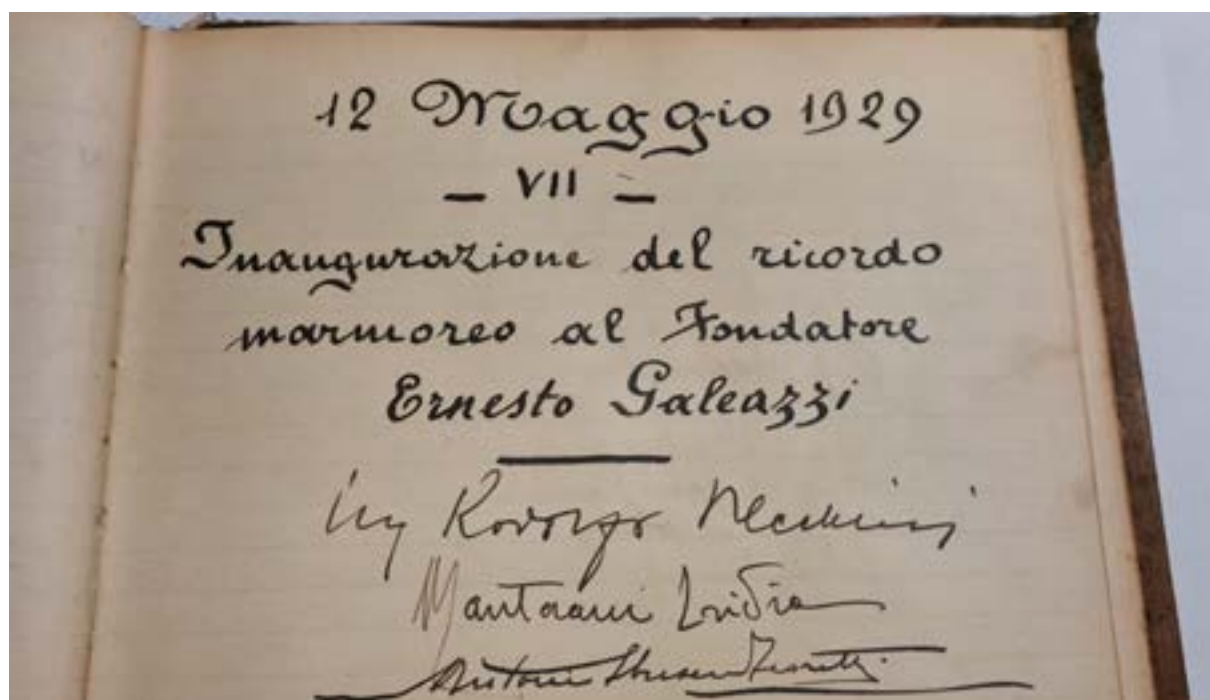 12 Maggio 1929
- VII -
Inaugurazione del ricordo
marmoreo al Fondatore
Ernesto Galeazzi
Ing Rodolfo
Mantovani